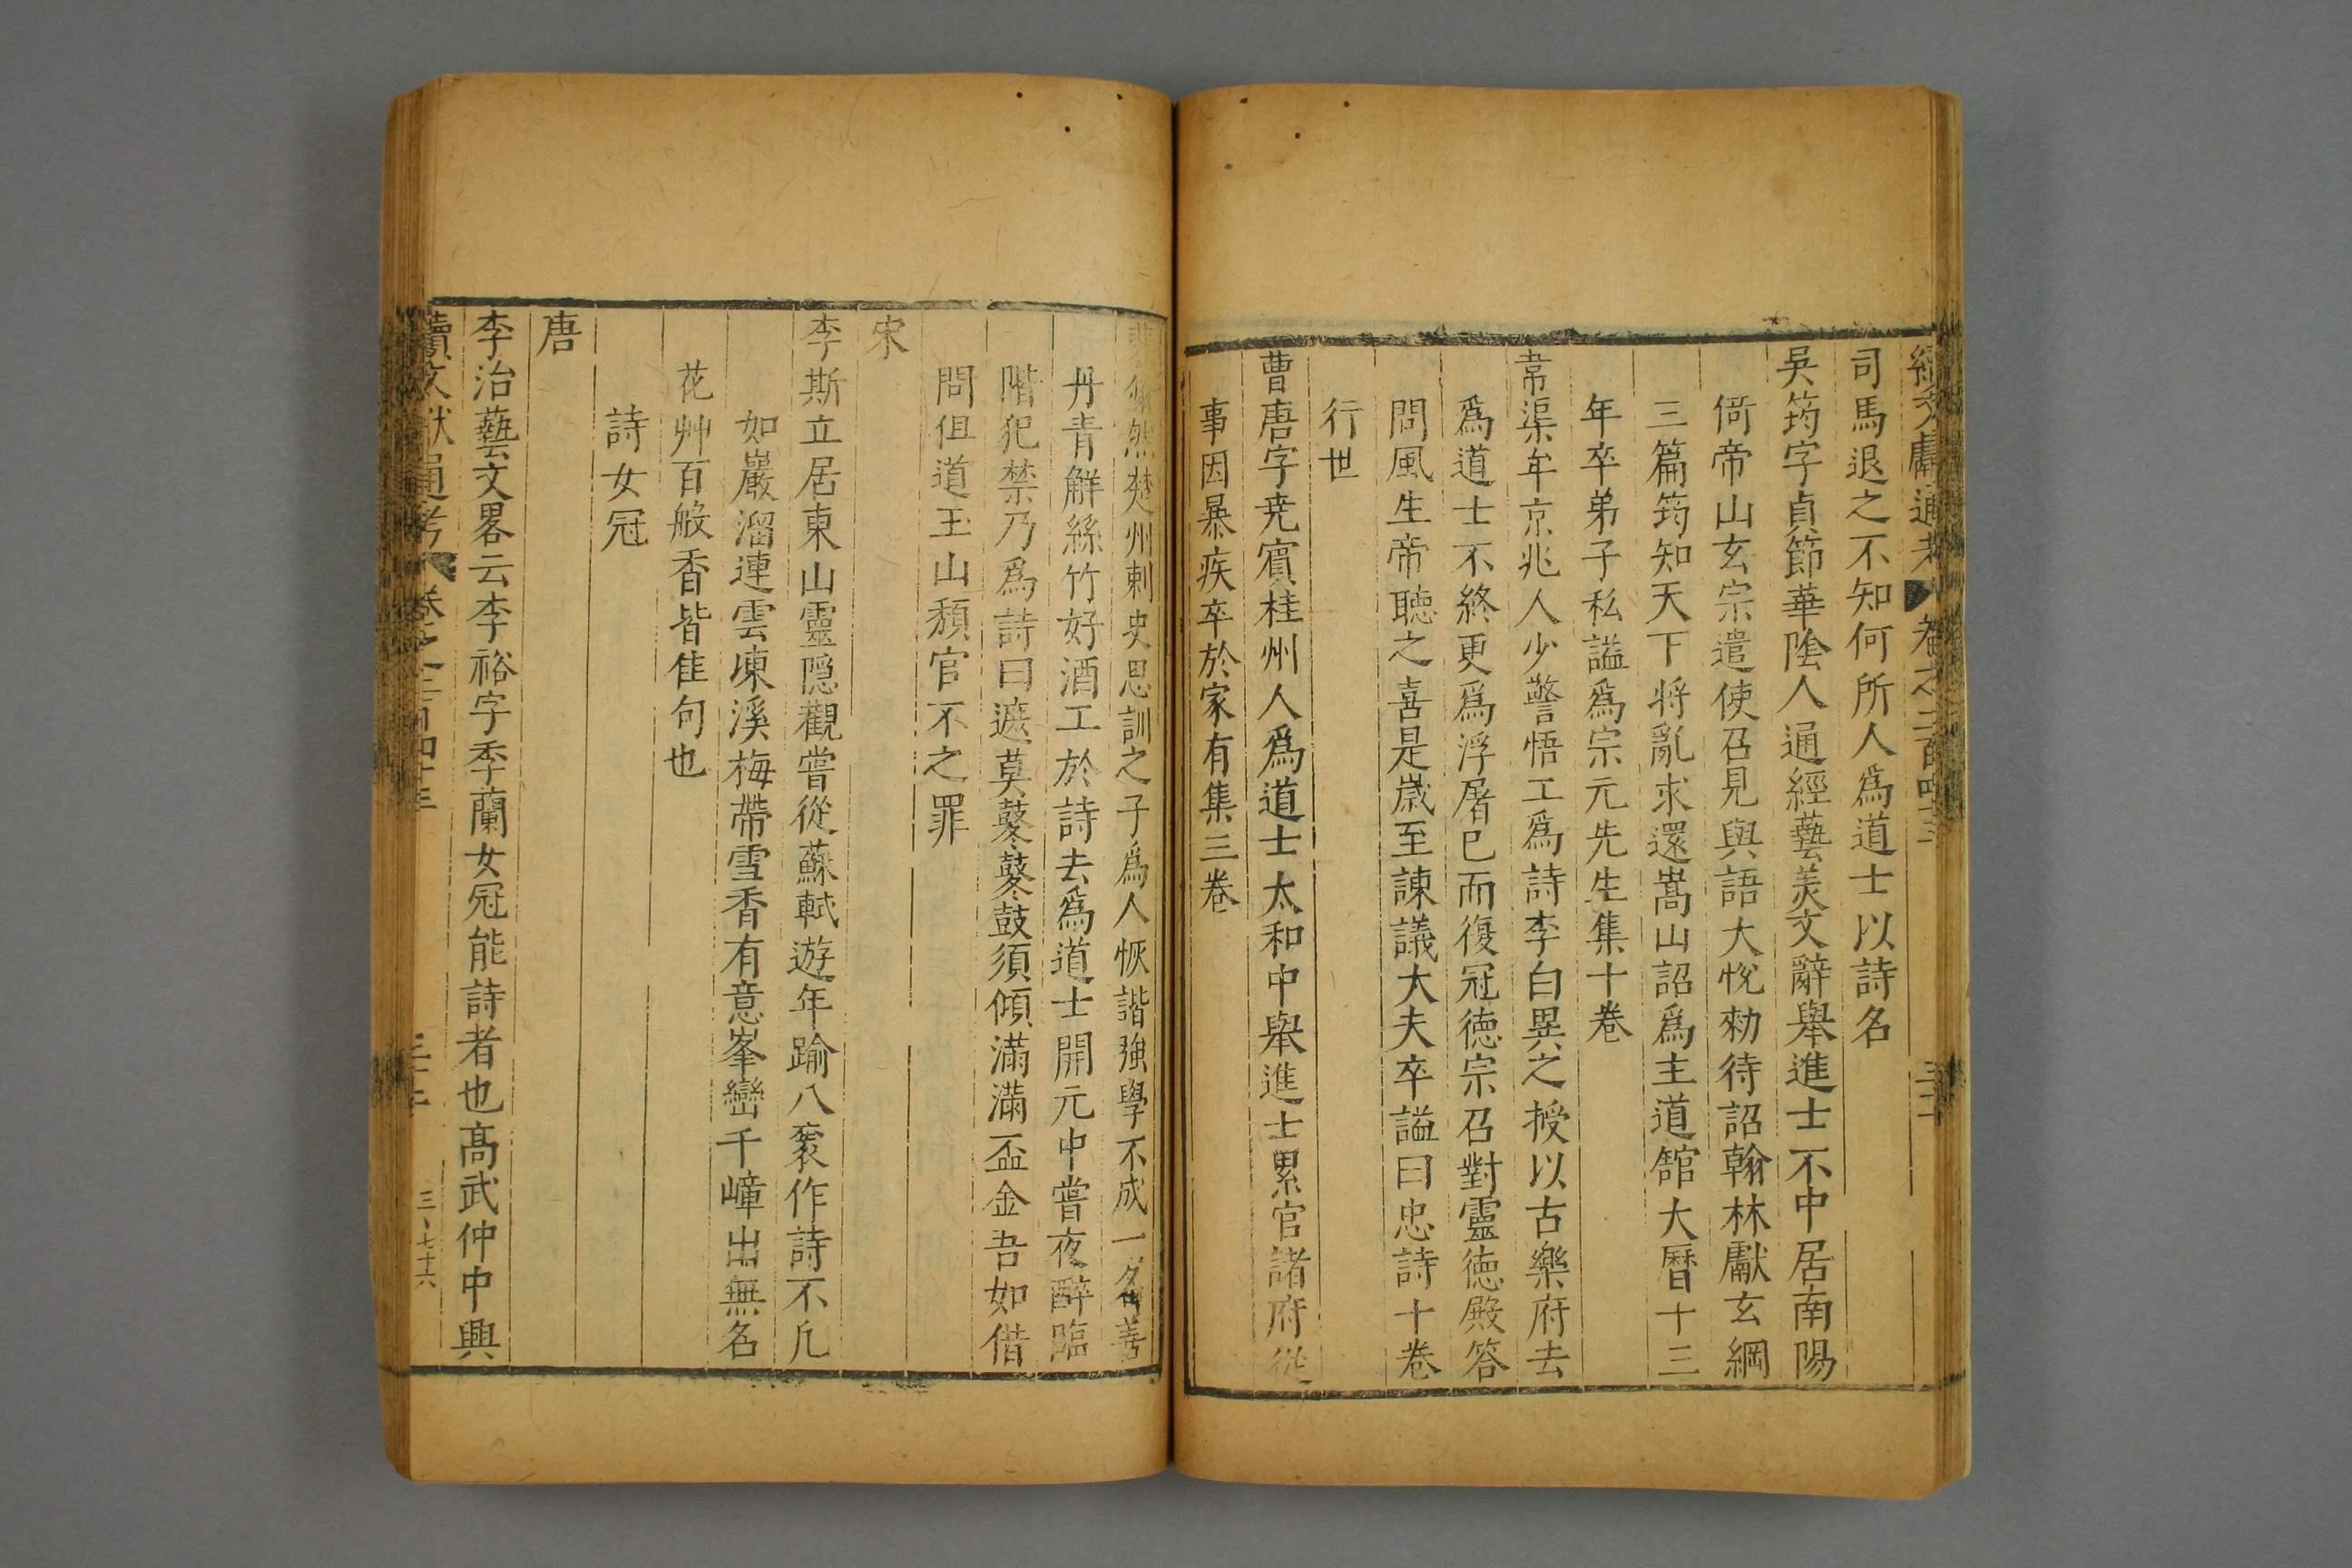 續文獻通考 卷之二百四十三 三十二
司馬退之不知何所人爲道士以詩名
吳筠字貞節華隂人通經藝美文辭舉進士不中居南陽
倚帝山玄宗遣使召見與語大悅勑待詔翰林獻玄綱
三篇筠知天下將亂求還嵩山詔爲主道舘大曆十三
年卒弟子私謚爲宗元先生集十卷
常渠牟京兆人少警悟工爲詩李白異之授以古樂府去
爲道士不終更爲浮屠已而復冠德宗召對靈德殿答
問風生帝聴之喜是歲至諫議大夫卒謚曰忠詩十卷
行世
曹唐字尭賓桂州人爲道士太和中舉進士累官諸府從
事因暴疾卒於家有集三卷
裴翛然楚州刺史思訓之子爲人恢諧強學不成一名善
丹青解絲竹好酒工於詩去爲道士開元中嘗夜醉臨
階犯禁乃爲詩曰遮莫鼕鼕鼓須傾滿滿盃金吾如借
問伹道玉山頽官不之罪
宋
李斯立居東山靈隐觀嘗從蘇軾遊年踰八袠作詩不凢
如巖溜連雲凍溪梅帶雪香有意峯巒千嶂出無名
花艸百般香皆佳句也
詩女冠
唐
李治藝文畧云李裕字季蘭女冠能詩者也髙武仲中興
續文獻通考 卷之二百四十三 三十二 三、七十六